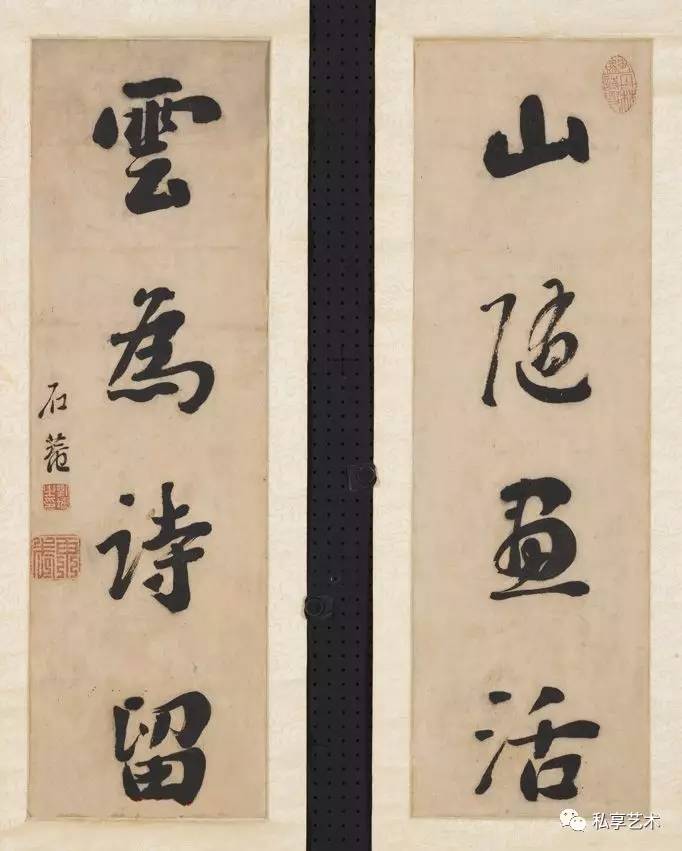 山隨畫活
雲為詩留
石菴
私享艺术